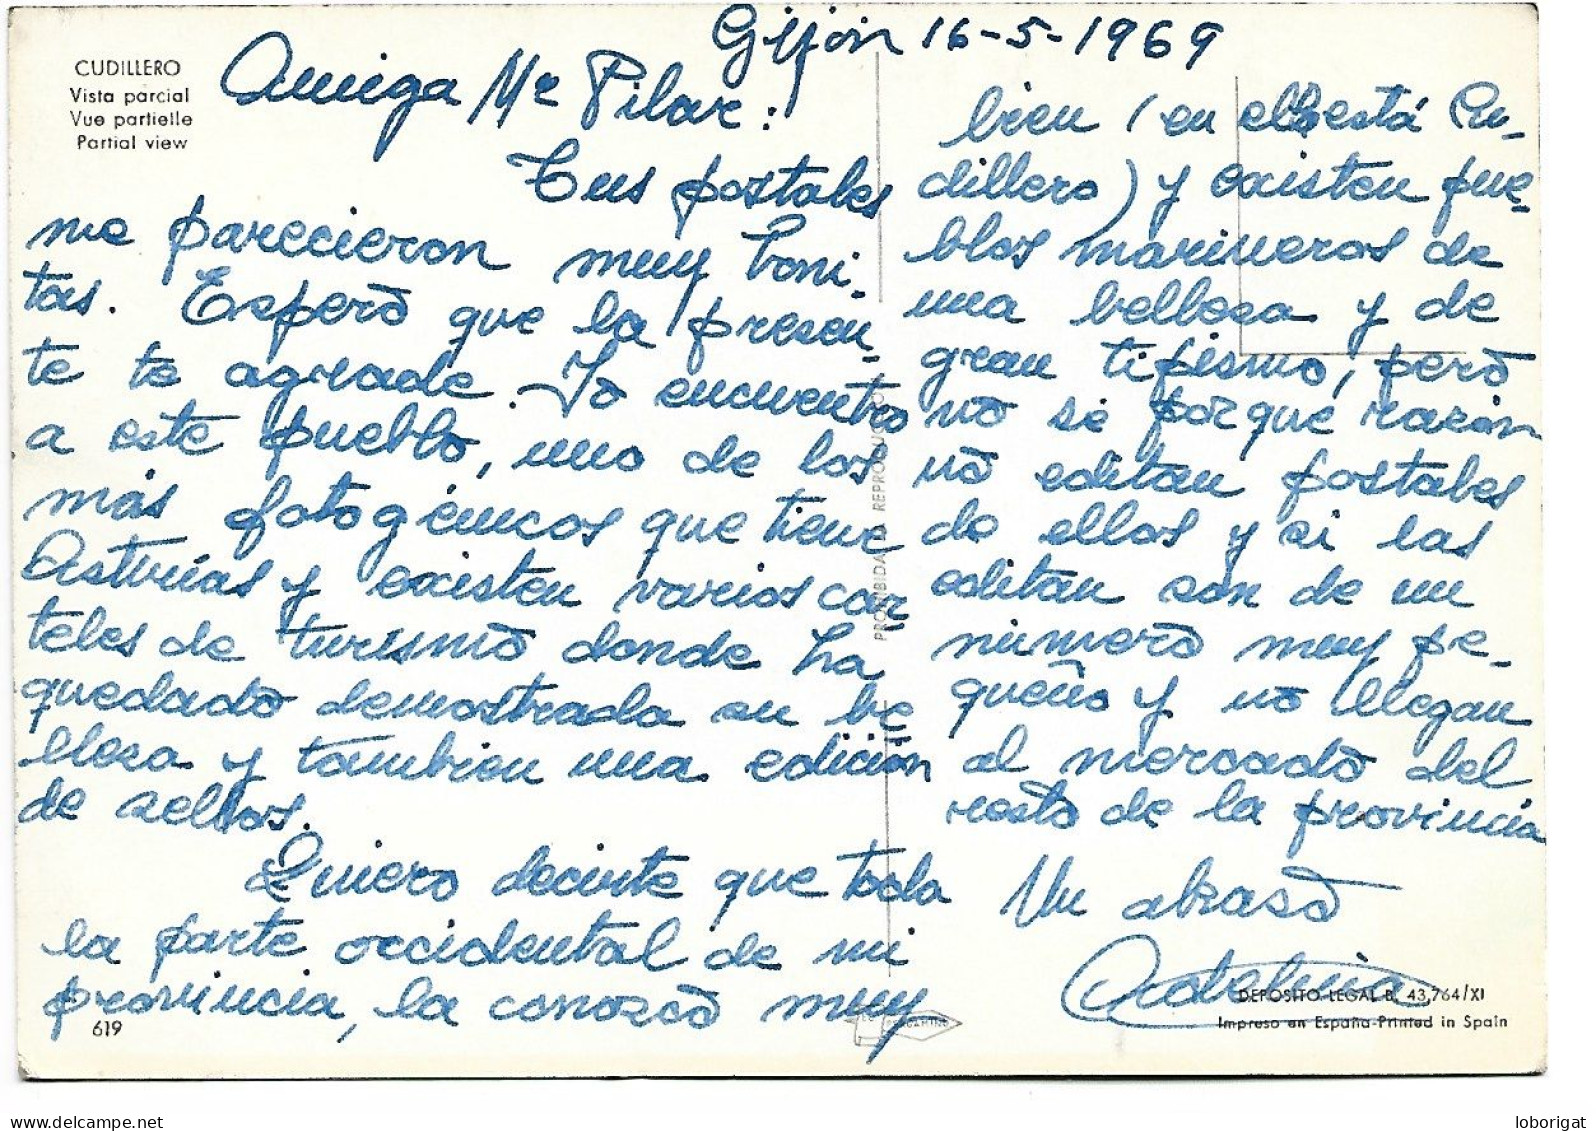 CUDILLERO
Vista parcial
Vue partielle
Partial view
Gijón 16-5-1969
Amiga Mª Pilar:
Tus postales
me parecieron muy boni-
tas. Espero que la presen-
te te agrade. Yo encuentro
a este pueblo, uno de los
más fotogénicos que tiene
Asturias y existen varios car
teles de turismo donde ha
quedado demostrada su be
llesa y tambien una edición
de sellos.
Quiero decirte que toda
la parte occidental de mi
provincia, la conozco muy
bien (en ella está Cu-
dillero) y existen pue-
blos marineros de
una bellesa y de
gran tipismo, pero
no se porque razón
no editan postales
de ellos y si las
editan son de un
número muy pe-
queño y no llegan
al mercado del
resto de la provincia
Un abraso
PROHIBIDA REPRODUCCIÓN
619
DEPOSITO LEGAL B. 43,764/XI
Impreso en España-Printed in Spain
loborigat